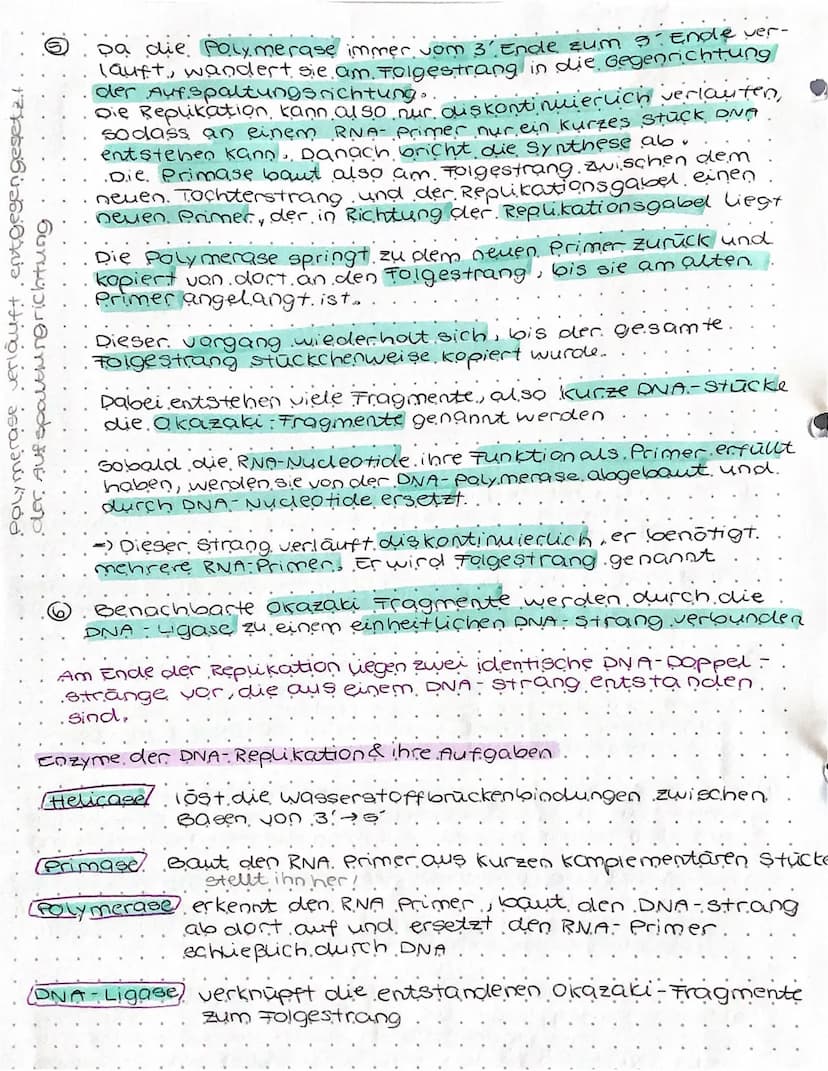 ⑤ Da die Polymerase immer vom 3' Ende zum 5' Ende ver-
läuft, wandert sie am Folgestrang in die Gegenrichtung
der Aufspaltungsrichtung.
Die Replikation kann also nur diskontinuierlich verlaufen,
sodass an einem RNA-Primer nur ein kurzes Stück DNA
entstehen kann. Danach bricht die Synthese ab.
Die Primase baut also am Folgestrang zwischen dem
neuen Tochterstrang und der Replikationsgabel einen
neuen Primer, der in Richtung der Replikationsgabel liegt
Die Polymerase springt zu dem neuen Primer zurück und
kopiert von dort an den Folgestrang, bis sie am alten
Primer angelangt ist.
Dieser Vorgang wiederholt sich, bis der gesamte
Folgestrang stückchenweise kopiert wurde.
Dabei entstehen viele Fragmente, also kurze DNA-Stücke
die Okazaki-Fragmente genannt werden
Sobald die RNA-Nucleotide ihre Funktion als Primer erfüllt
haben, werden sie von der DNA-Polymerase abgebaut und
durch DNA-Nucleotide ersetzt.
→ Dieser Strang verläuft diskontinuierlich, er benötigt
mehrere RNA-Primer. Er wird Folgestrang genannt
⑥ Benachbarte Okazaki Fragmente werden durch die
DNA-Ligase zu einem einheitlichen DNA-Strang verbunden
Am Ende der Replikation liegen zwei identische DNA-Doppel-
stränge vor, die aus einem DNA-Strang entstanden
sind.
Enzyme der DNA-Replikation & ihre Aufgaben
Helicase löst die Wasserstoffbrückenbindungen zwischen
Basen von 3' → 5'
Primase Baut den RNA Primer aus kurzen komplementären Stücke
stellt ihn her!
Polymerase erkennt den RNA Primer, baut den DNA-Strang
ab dort auf und ersetzt den RNA-Primer
schießlich durch DNA
DNA-Ligase verknüpft die entstandenen Okazaki-Fragmente
zum Folgestrang
Polymerase verläuft entgegengesetzt
der Aufspaltungsrichtung